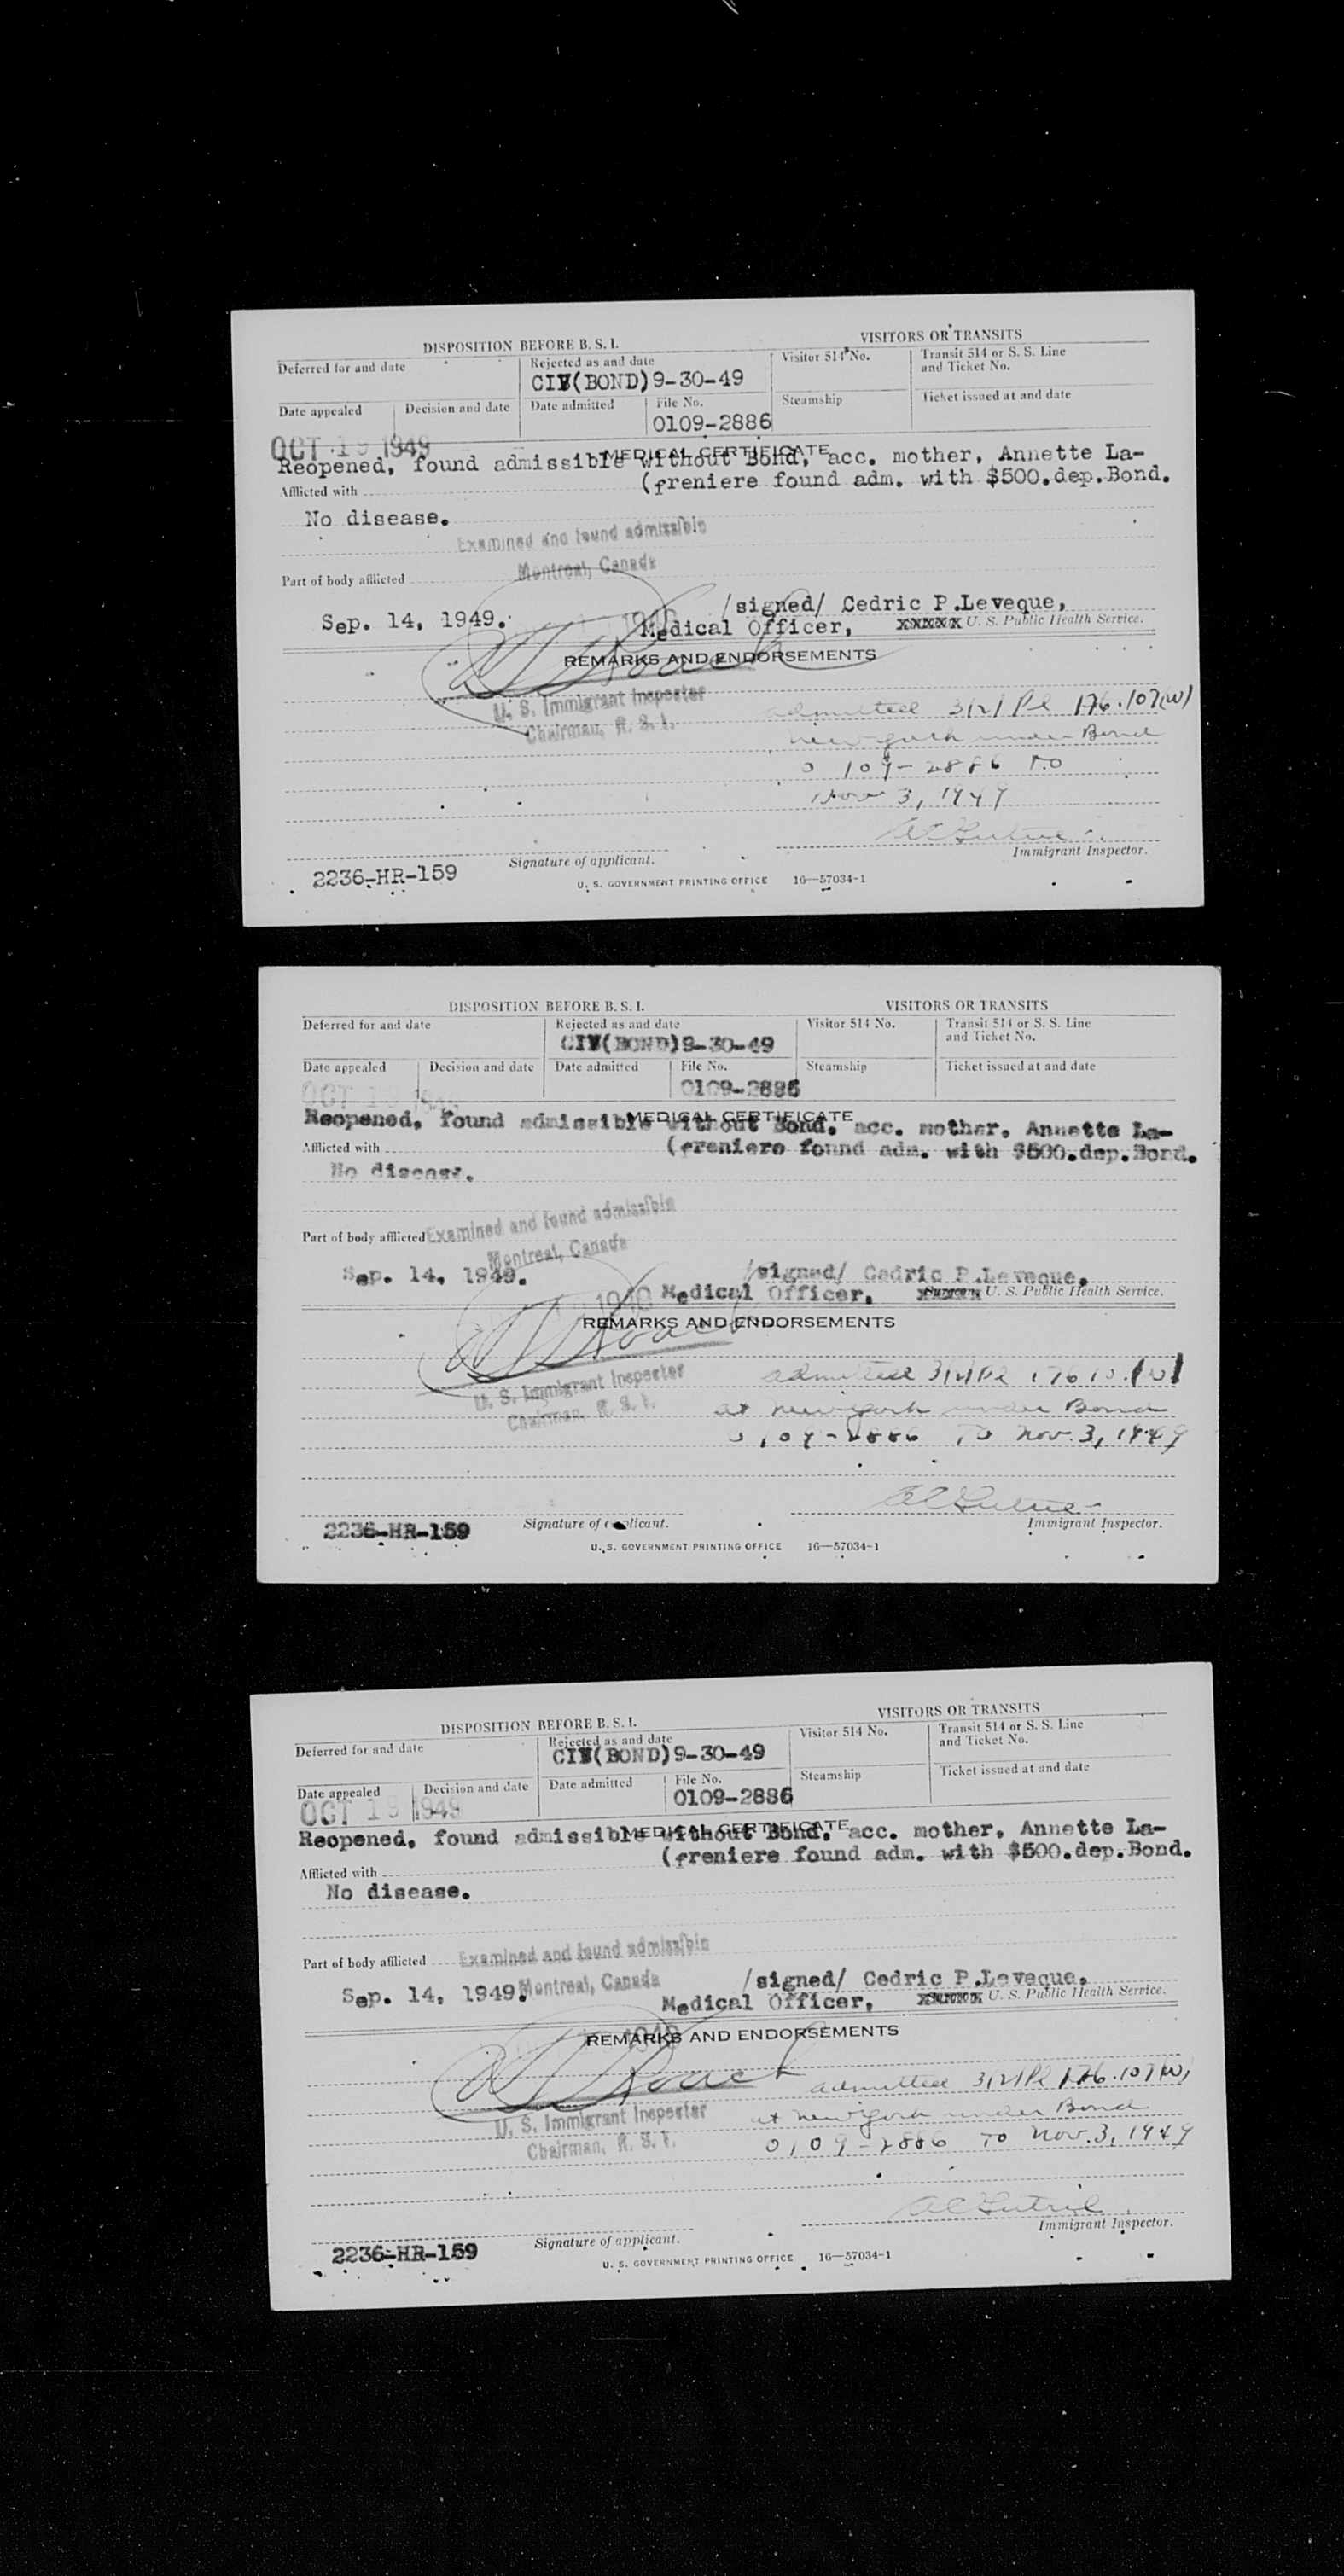 DISPOSITION BEFORE B. S. I.
VISITORS OR TRANSITS
Deferred for and date
Rejected as and date
Visitor 514 No.
Transit 514 or S. S. Line
and Ticket No.
(BOND) 9-30-49
Date appealed
Decision and date
Date admitted
File No.
Steamship
Ticket issued at and date
0109-2886
OCT 19 1949
MEDICAL CERTIFICATE
Reopened, found admissible without Bond, acc. mother, Annette La-
Afflicted with
(freniere found adm. with $500.dep.Bond.
No disease.
Examined and found admissible
Montreal, Canada
Part of body afflicted
Sep. 14, 1949.
/signed/ Cedric P.Leveque,
Medical Officer, xxxxx U. S. Public Health Service.
REMARKS AND ENDORSEMENTS
U. S. Immigrant Inspector
Chairman,
admitted 3(2) Pl 176.107(W)
New York under Bond
0109-2886 TO
Nov 3, 1949
Signature of applicant.
Immigrant Inspector.
2236-HR-159
U. S. GOVERNMENT PRINTING OFFICE 16—57034-1
DISPOSITION BEFORE B. S. I.
VISITORS OR TRANSITS
Deferred for and date
Rejected as and date
Visitor 514 No.
Transit 514 or S. S. Line
and Ticket No.
(BOND) 9-30-49
Date appealed
Decision and date
Date admitted
File No.
Steamship
Ticket issued at and date
0109-2886
OCT 19 1949
MEDICAL CERTIFICATE
Reopened, found admissible without Bond, acc. mother, Annette La-
Afflicted with
(freniere found adm. with $500.dep.Bond.
No disease.
Part of body afflicted
Examined and found admissible
Montreal, Canada
Sep. 14, 1949.
/signed/ Cedric P.Leveque,
Medical Officer, U. S. Public Health Service.
REMARKS AND ENDORSEMENTS
U. S. Immigrant Inspector
Chairman,
admitted 3(2) Pl
at New York under Bond
0109-2886 TO Nov. 3, 1949
Signature of applicant.
Immigrant Inspector.
2236-HR-159
U. S. GOVERNMENT PRINTING OFFICE 16—57034-1
DISPOSITION BEFORE B. S. I.
VISITORS OR TRANSITS
Deferred for and date
Rejected as and date
Visitor 514 No.
Transit 514 or S. S. Line
and Ticket No.
(BOND) 9-30-49
Date appealed
Decision and date
Date admitted
File No.
Steamship
Ticket issued at and date
0109-2886
OCT 19 1949
MEDICAL CERTIFICATE
Reopened, found admissible without Bond, acc. mother, Annette La-
Afflicted with
(freniere found adm. with $500.dep.Bond.
No disease.
Part of body afflicted
Examined and found admissible
Montreal, Canada
Sep. 14, 1949.
/signed/ Cedric P.Leveque,
Medical Officer, U. S. Public Health Service.
REMARKS AND ENDORSEMENTS
U. S. Immigrant Inspector
Chairman,
admitted 3(2) Pl 176.107(W)
at New York under Bond
0109-2886 TO Nov. 3, 1949
Signature of applicant.
Immigrant Inspector.
2236-HR-159
U. S. GOVERNMENT PRINTING OFFICE 16—57034-1